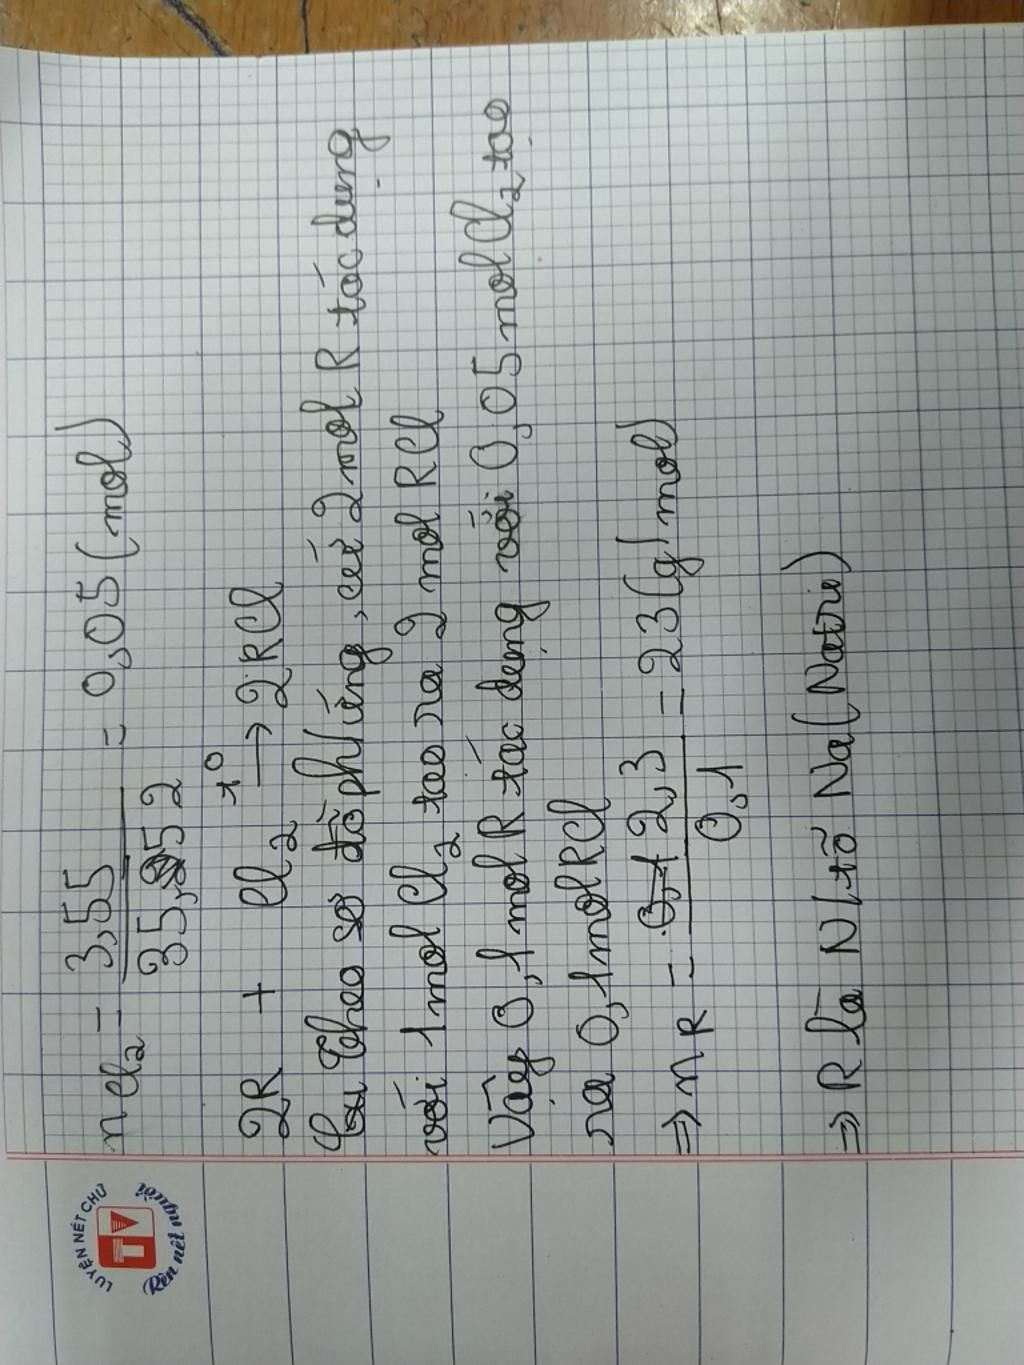 LUYỆN NÉT CHỮ
Rèn nết người
nCl₂ = 3,55 / 35,5 2 = 0,05 (mol)
2R + Cl₂ t⁰→ 2RCl
Theo sơ đồ ph/ứng, cứ 2 mol R tác dụng
với 1 mol Cl₂ tạo ra 2 mol RCl
Vậy 0,1 mol R tác dụng với 0,05 mol Cl₂ tạo
ra 0,1 mol RCl
⇒ nR = 2,3 / 0,1 = 23 (g/mol)
⇒ R là N/tố Na (Natri)